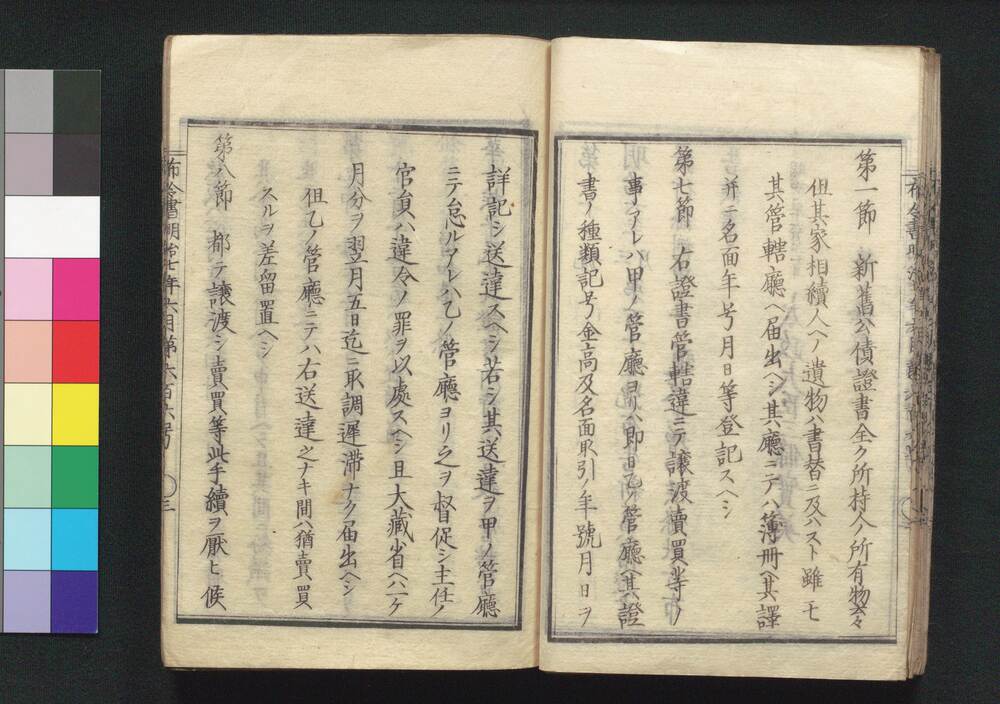 第一節 新舊公債證書全ク所持人ノ所有物云々
但其家相續人ヘノ遺物ハ書替ニ及ハスト雖モ
其管轄廳ヘ届出ヘシ其廳ニテハ簿冊ヘ其譯
并ニ名面年号月日等登記スヘシ
第七節 右證書管轄違ニテ譲渡賣買等ノ
事アレハ甲ノ管廳ヨリハ即日乙ノ管廳ヘ其證
書ノ種類記号金高及名面取引ノ年號月日ヲ
詳記シ送達スヘシ若シ其送達ヲ甲ノ管廳
ニテ怠ルアレハ乙ノ管廳ヨリ之ヲ督促シ主任ノ
官員ハ違令ノ罪ヲ以處スヘシ且大藏省ヘハ一ケ
月分ヲ翌月五日迄ニ取調遅滞ナク届出ヘシ
但乙ノ管廳ニテハ右送達之ナキ間ハ猶賣買
スルヲ差留置ヘシ
第八節 都テ譲渡シ賣買等此手續ヲ厭ヒ候
布令書明治七年六月第六百六号 三